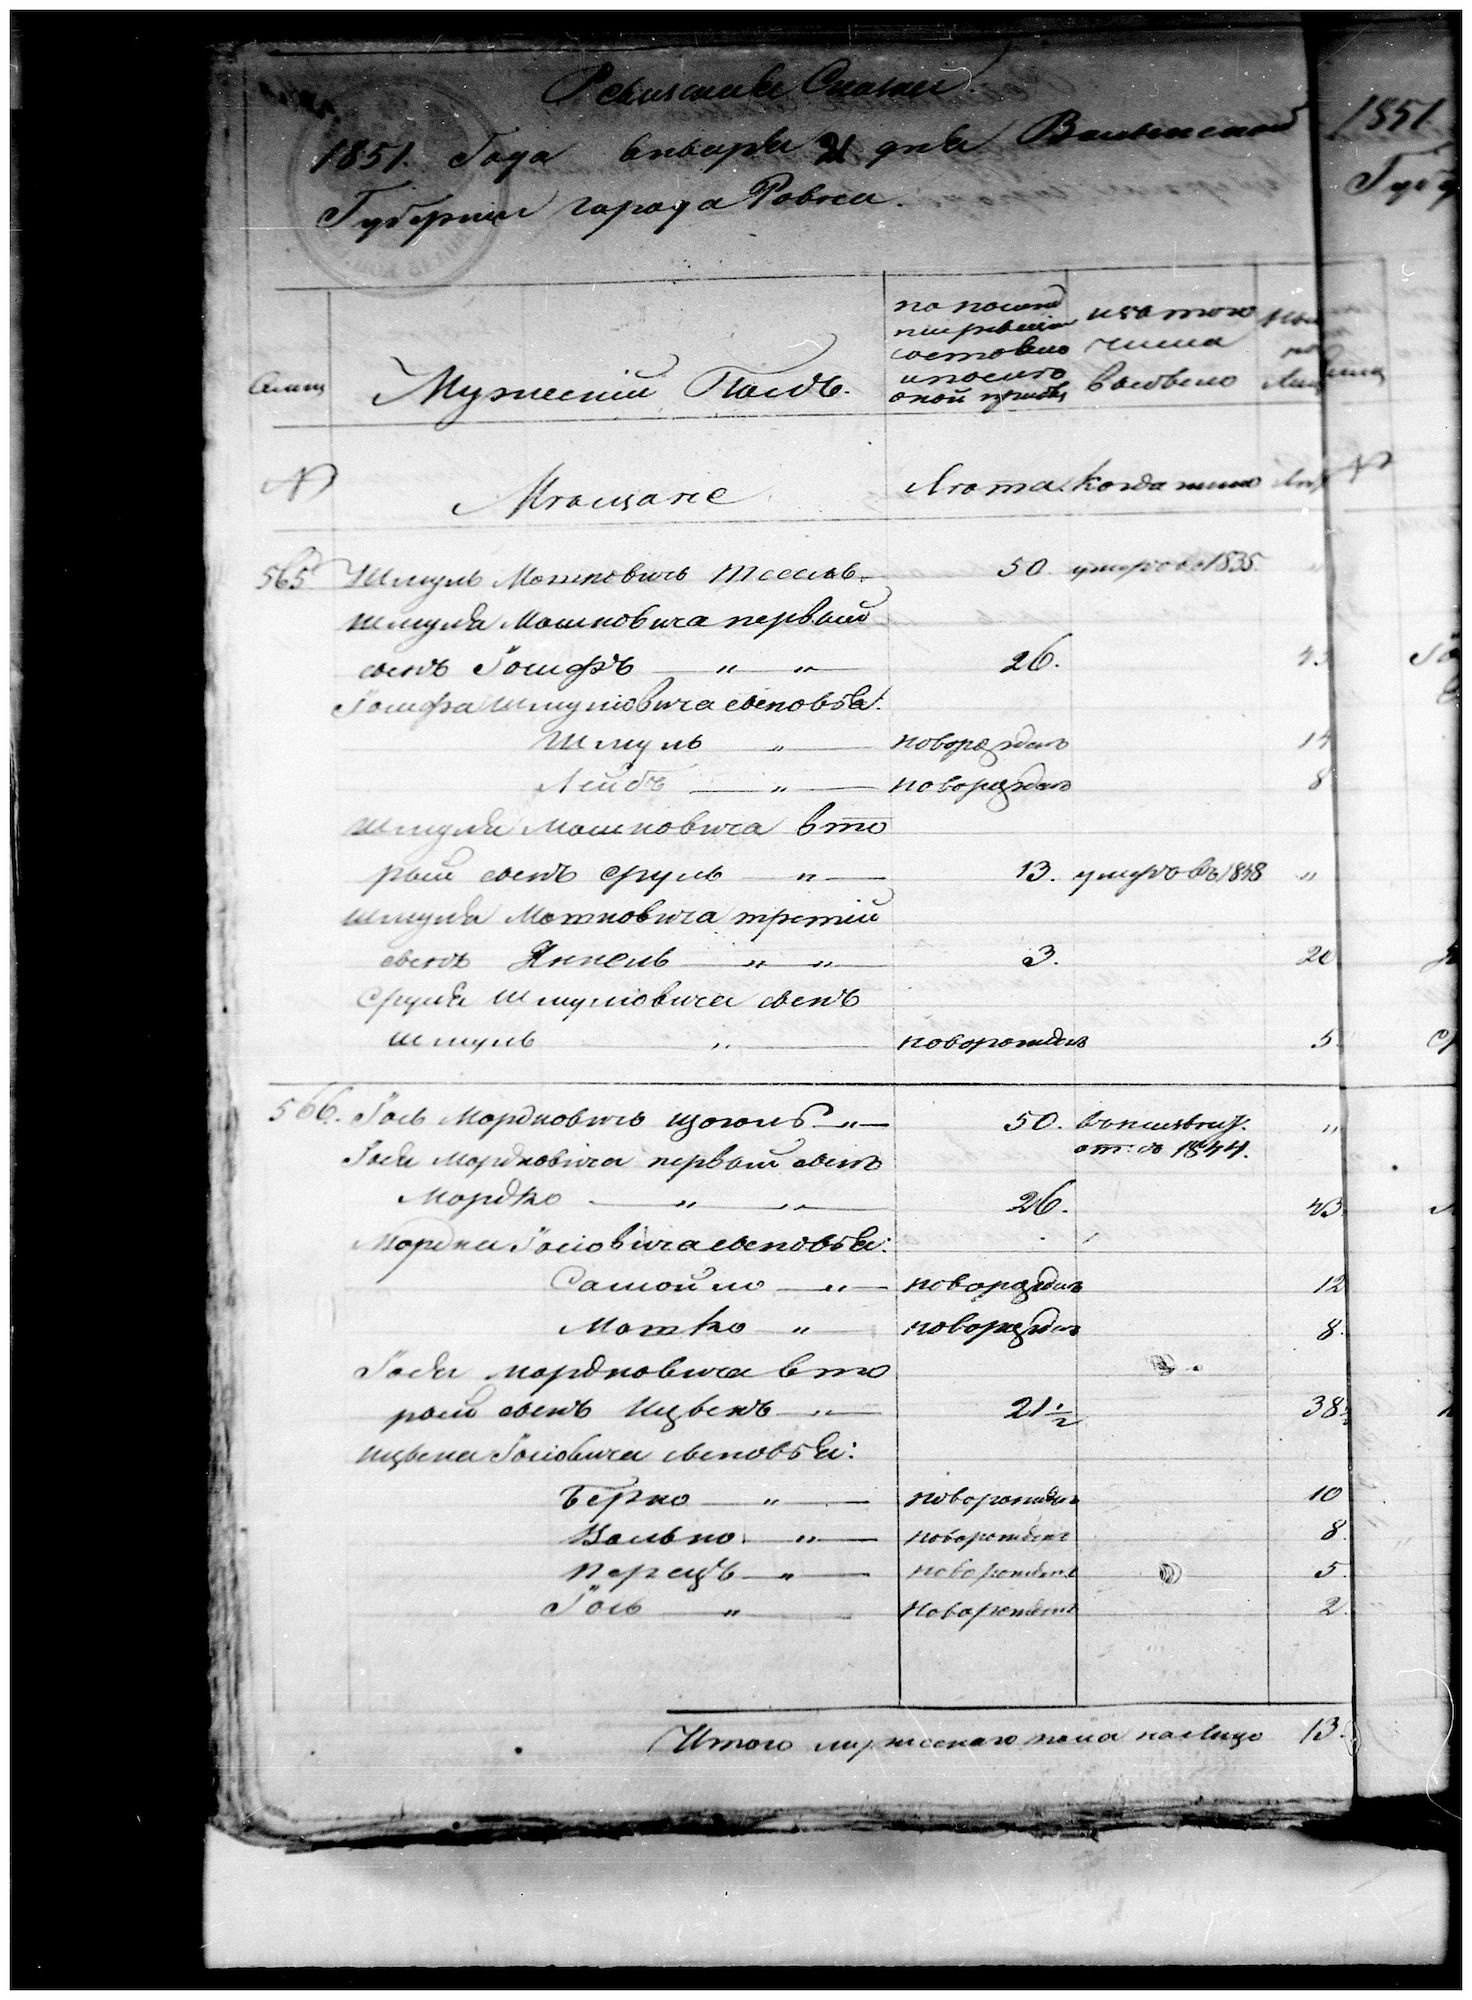 Ревизская Сказка
1851. Года Января 21 дня Волынской
Губернии города Ровна.
Мужеский Полъ.
по последней ревизии состояло и после оной прибыло
изъ того числа выбыло
№ Мещане Лета. Когда именно
565 Шмуль Мошковичъ 50. умеръ въ 1835. "
Шмуля Мошковича первый
сынъ Іосифъ " " 26.
Іосифа Шмулiовича сыновья:
Шмуль " новорожден 14
Лейбъ " новорожден 8
Шмуля Мошковича вто
рый сынъ Сруль " 13. умеръ въ 1848 "
Шмуля Мошковича третiй
сынъ Янкель " " 3. 20
Сруля Шмулiовича сынъ
Шмуль " новорожден 5.
566. Іось Мордковичъ 50. 1844. "
Іося Мордковича первый сынъ
Мордко " " 26. 43.
Мордка Іосiовича сыновья:
Самойло " новорожден 12
Мошко " новорожден 8.
Іося Мордковича вто
рый сынъ Ицвекъ " 21 1/2 38 1/2
Ицвека Іосiовича сыновья:
Берко " новорожден 10
Волько " новорожден 8.
Перецъ " новорожден 5.
Іось " новорожден 2.
Итого мужескаго пола на лицо 13.
1851